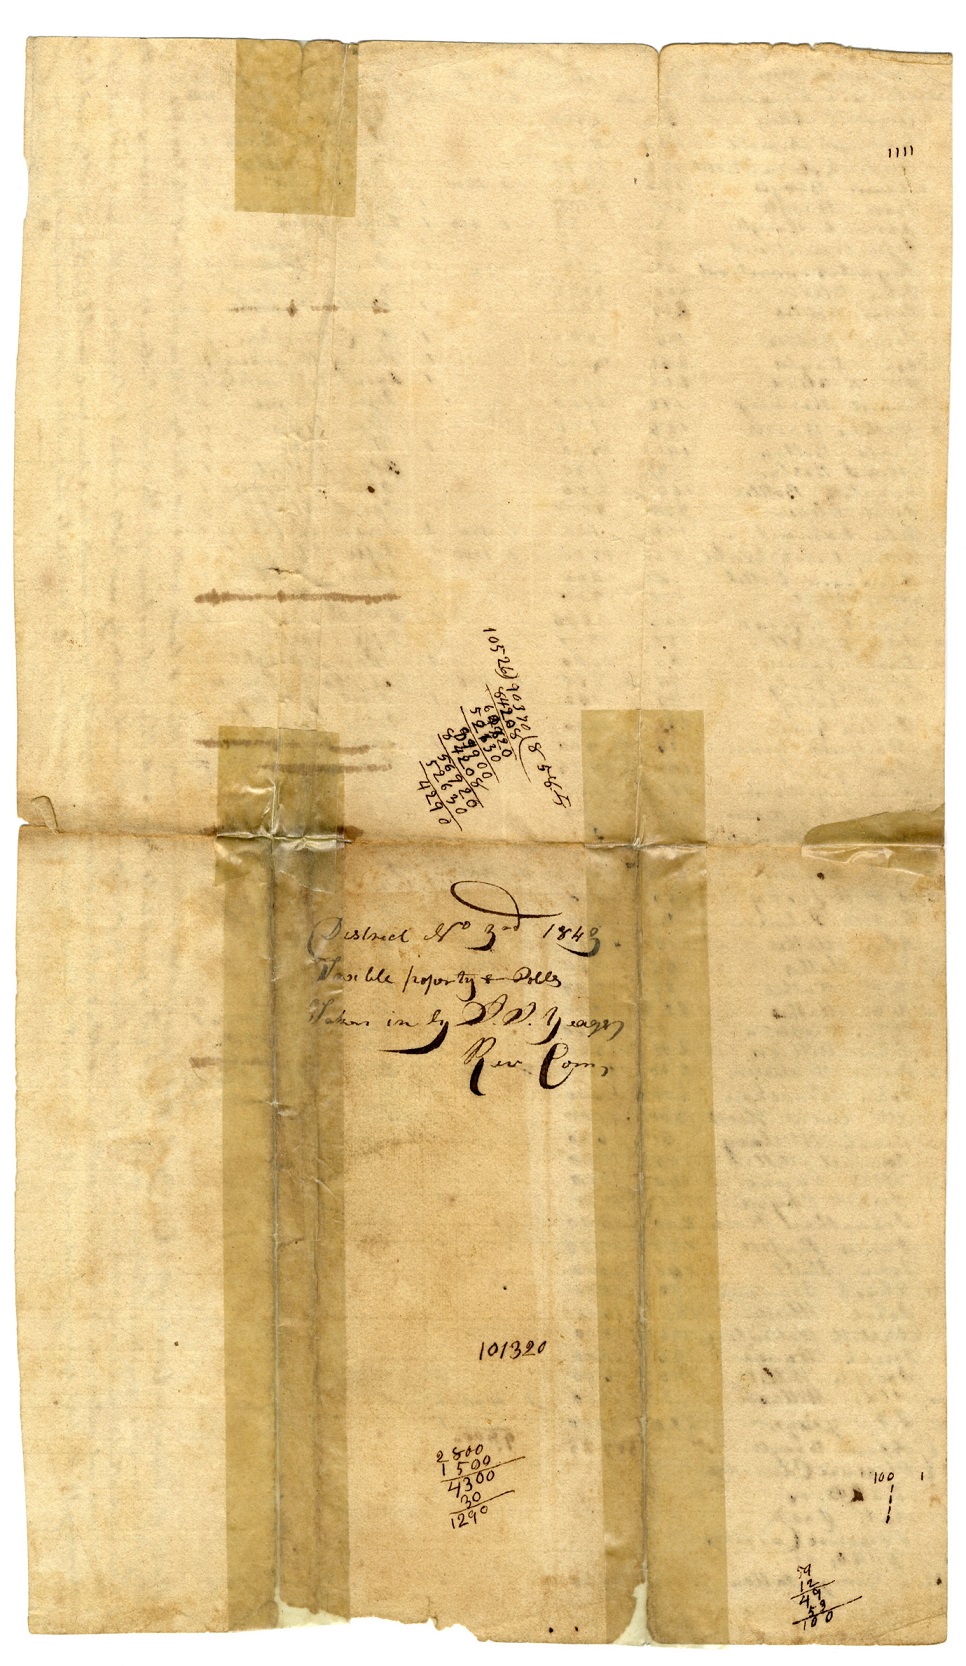 1111
10526)90370(8585
84208
61620
52630
89900
84208
56920
52630
42900
District No 3rd 1843.
Taxible poporty & Polls
Taken in by Yeager
Rev Com,
101320
2800
1500
4300
30
1290
100 1
12
49
100